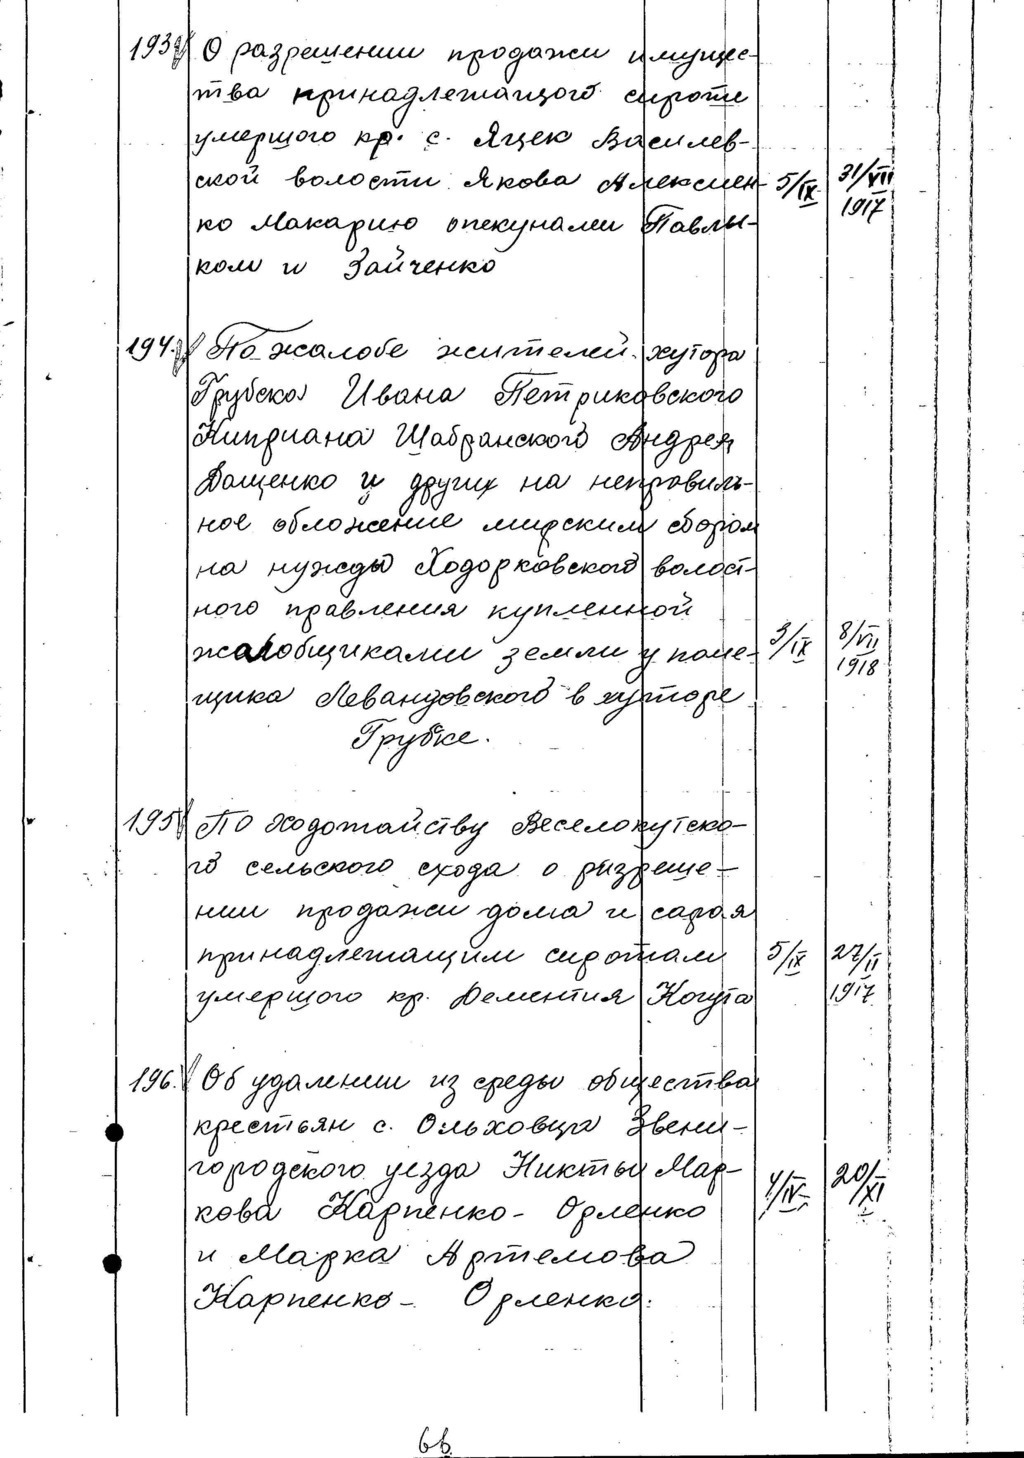 193. О разрешении продажи имущес-
тва принадлежащого сироте
умершого кр. с. Яцек Василев-
ской волости Якова Алексиен- 5/IX 31/VII
ко Макарию опекунами Павлы- 1917
ком и Зайченко
194. По жалобе жителей хутора
Грубска Ивана Петриковского
Киприана Шабранского Андрея
Дащенко и других на неправиль-
ное обложение мирским сбором
на нужды Ходорковского волост-
ного правления купленной
жалобщиками земли у поме- 3/IX 8/VII
щика Левандовского в хуторе 1918
Грубке.
195. По ходотайству Веселокутско-
го сельского схода о разреше-
нии продажи дома и сарая
принадлежащим сиротам 5/IX 27/II
умершого кр. Дементия Когута 1917
196. Об удалении из среды общества
крестьян с. Ольховца Звени-
городского уезда Никты Мар- 4/IV 20/XI
кова Карпенко - Орленко
и Марка Артемова
Карпенко - Орленко.
66